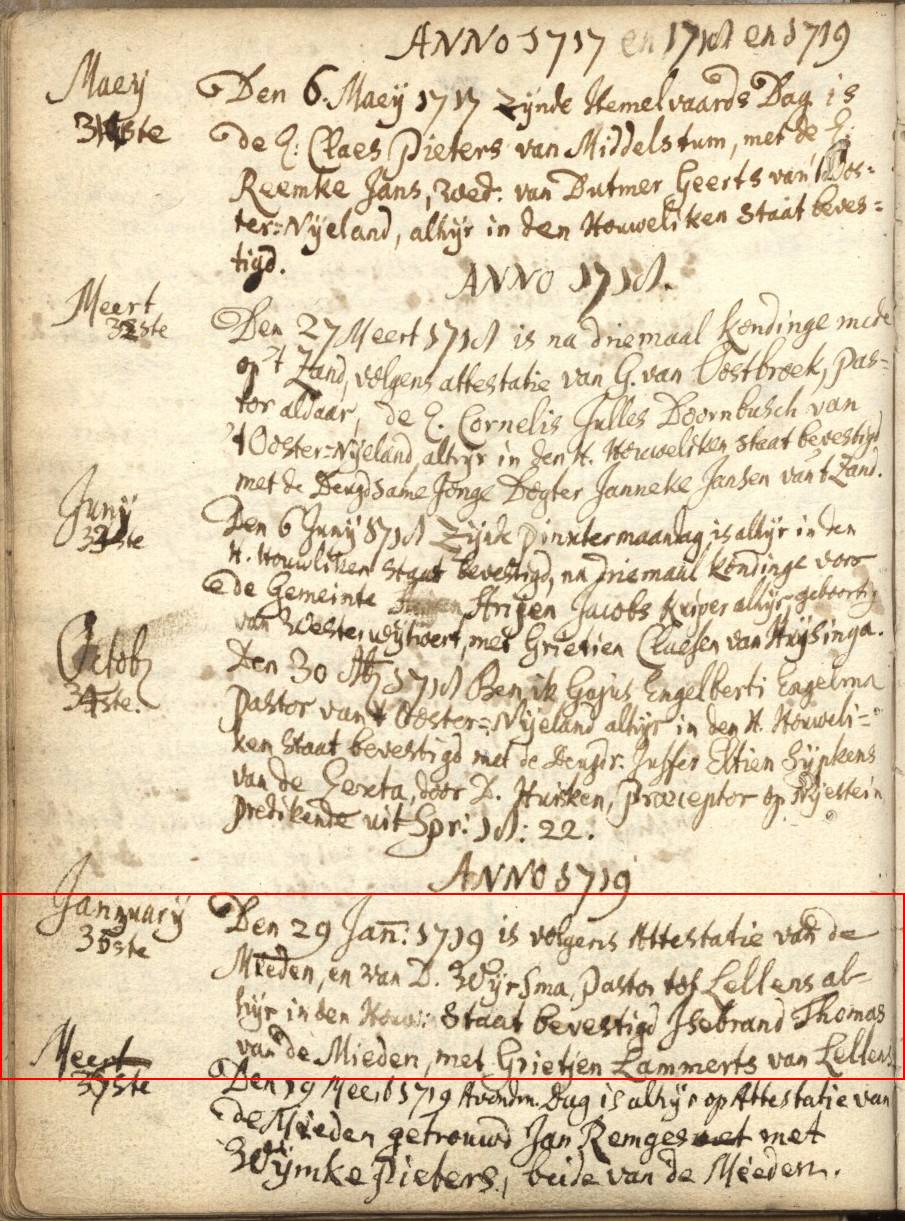 ANNO 1717 en 1718 en 1719
Maey
31ste
Den 6. Maey 1717 zynde Hemelvaards Dag is
de E: Claes Pieters van Middelstum, met de E.
Reemke Jans, wed: van Dutmer Geerts van 't Oos-
ter-Nyeland, alhyr in den Houweliken Staat beves=
tigd.
ANNO 1718.
Meert
32ste
Den 27 Meert 1718 is na driemaal kondinge mede
op 't Zand, volgens attestatie van G. van Oostbroek, Pas=
tor aldaar, de E. Cornelis Julles Doornbusch van
't Ooster=Nyeland, alhyr in den H. Houweliken Staat bevestigd
met de Deugdsame Jonge Dogter Janneke Jansen van 't Zand.
Juny
33ste
Den 6 Juny 1718 zynde Pinxtermaandag is alhyr in den
H. Houwliken Staat bevestigd, na driemaal kondinge voor
de Gemeinte Arijen Jacobs Kuiper alhyr, geboortig
van Westerwytwert, met Grietien Claesen van Huysinga.
Octob
34ste.
Den 30 8b 1718 Ben ik Gajus Engelberti Engelma
Pastor van 't Ooster=Nyeland alhyr in den H. Houweli=
ken Staat bevestigd met de Deugdr. Juffer Eltien Sypkens
van de Gexta, door D. Husken, Præceptor op Nyestein
predikende uit Spr: 18: 22.
ANNO 1719
January
35ste
Den 29 Jan: 1719 is volgens Attestatie van de
Mieden, en van D. Wyrsma, Pastor tot Lellens al-
hyr in den Houw: Staat bevestigd Isebrand Thomas
van de Mieden, met Grietjen Lammerts van Lellens
Meert
36ste
Den 19 Meert 1719 Avondm. Dag is alhyr op Attestatie van
de Mieden getrouwd Jan Remges met
Wymke Pieters, beide van de Meeden.